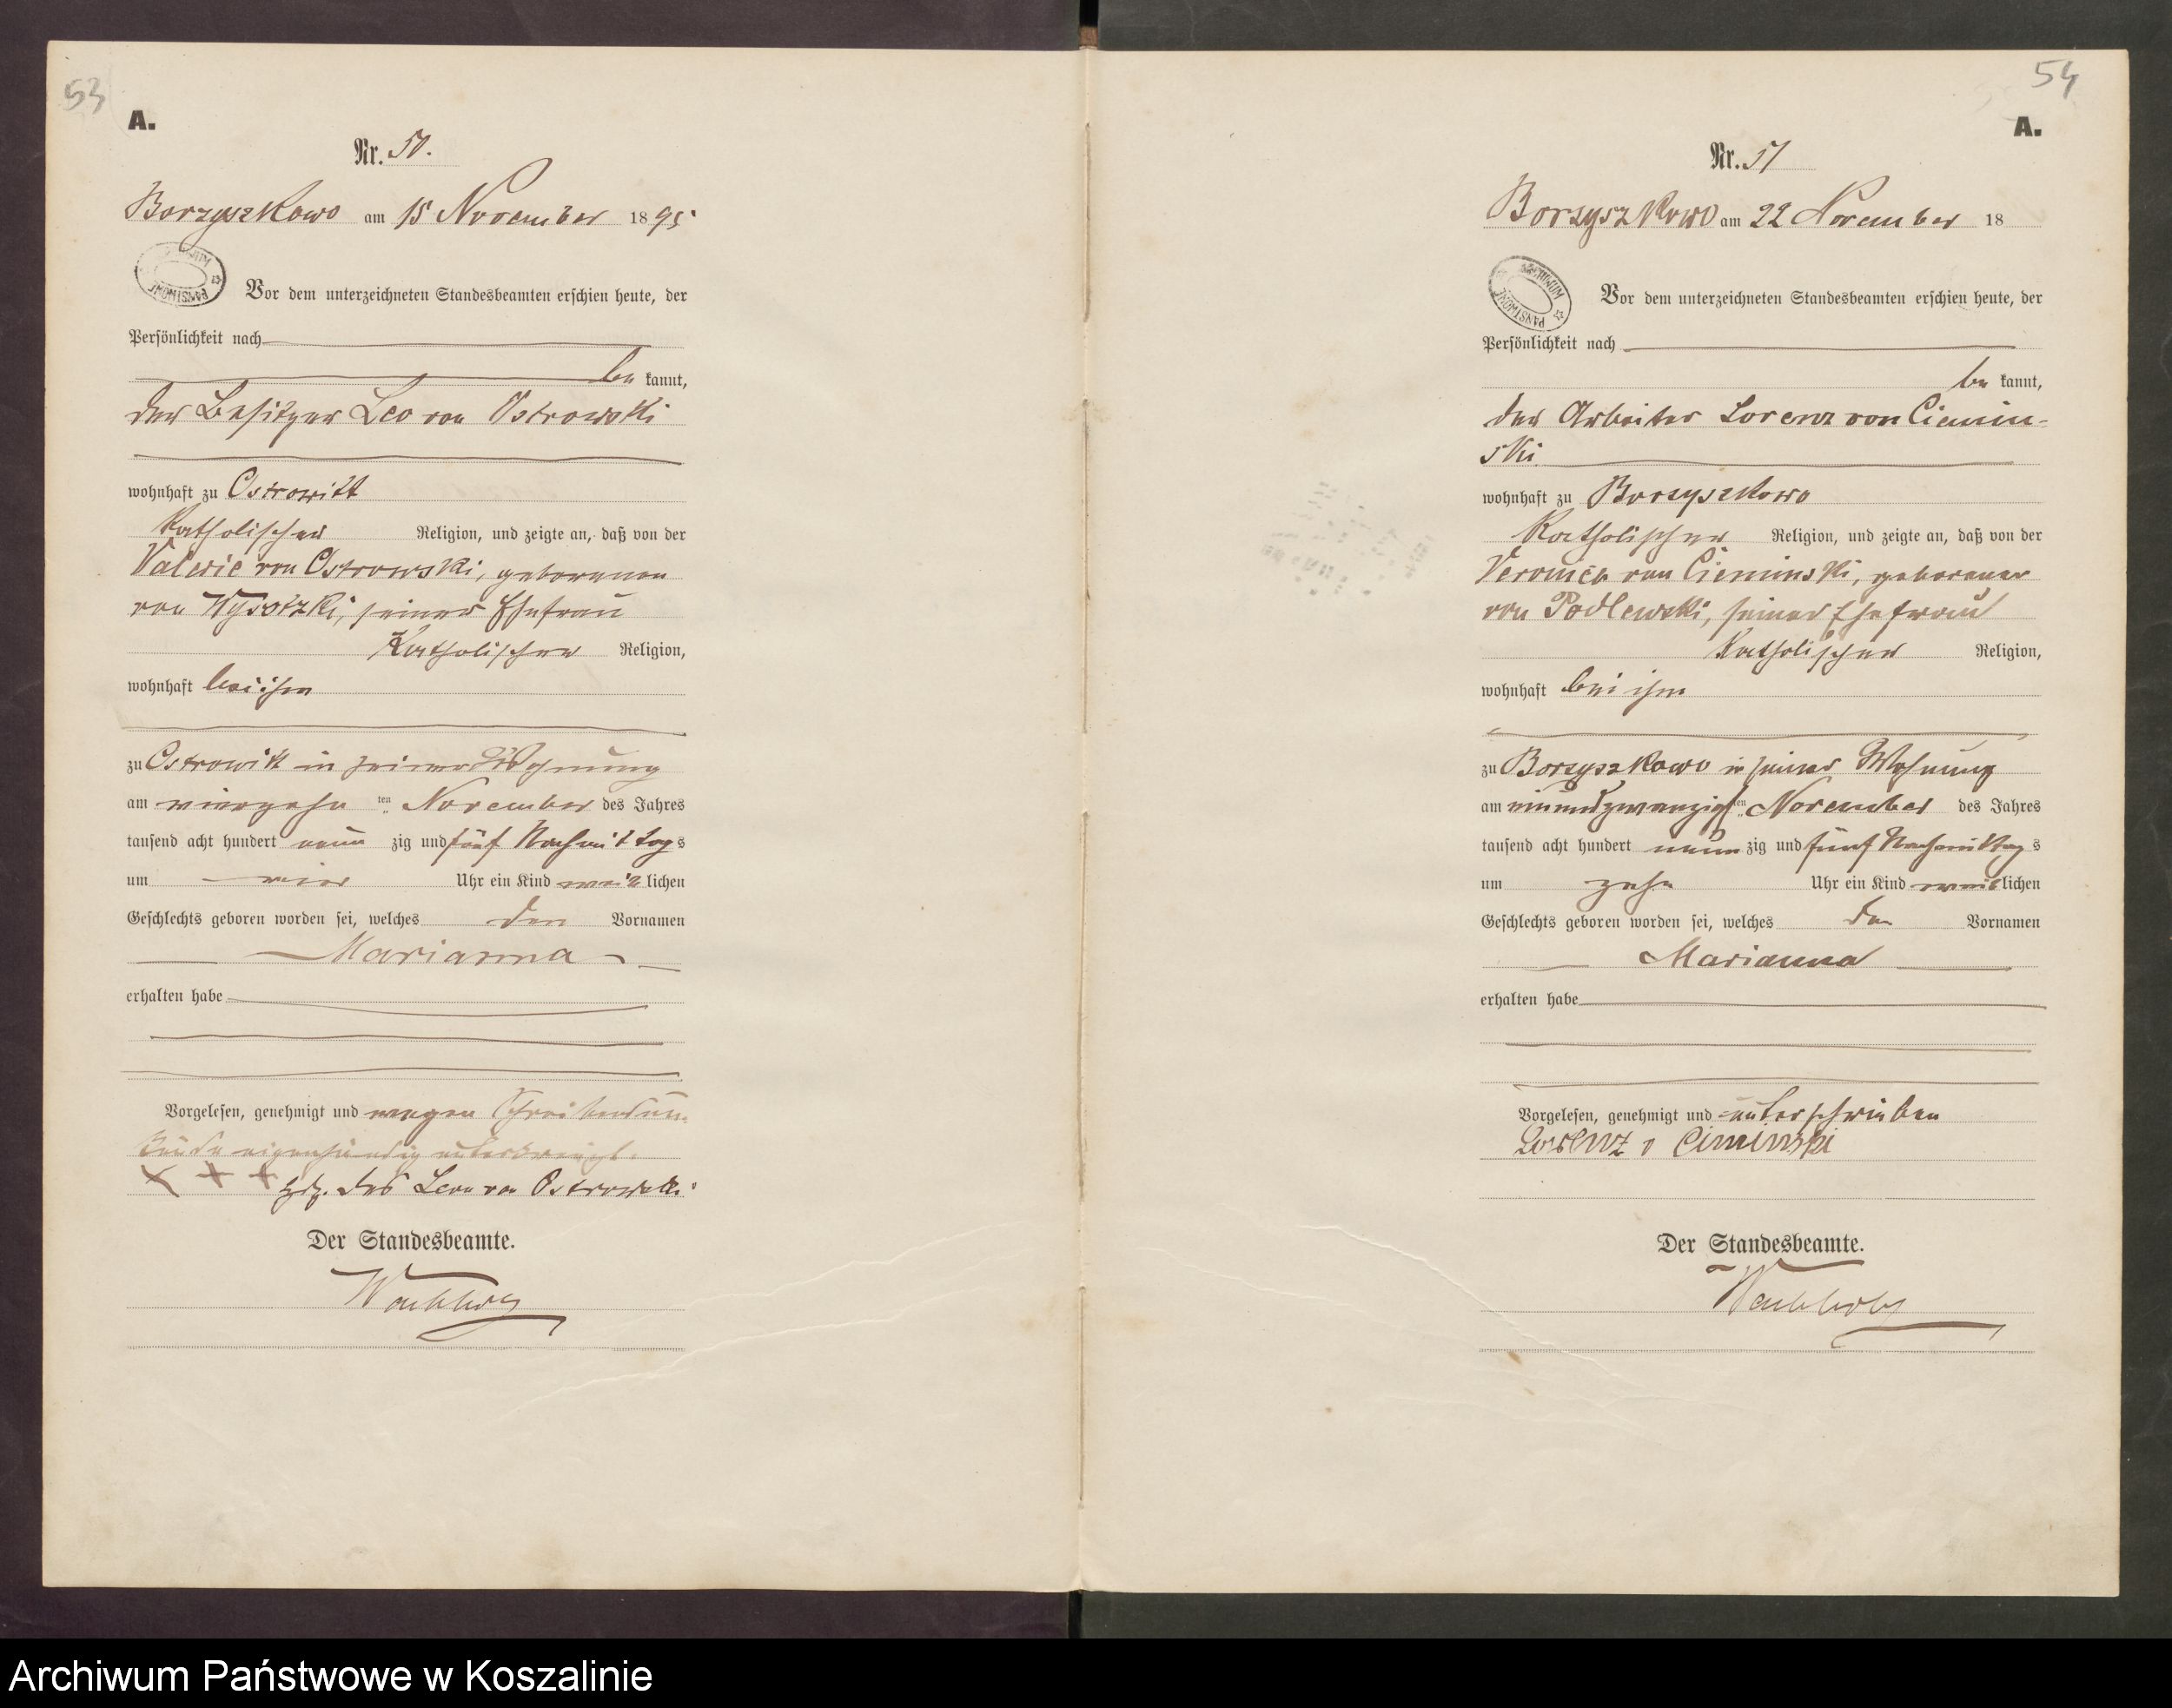 53
A.
Nr. 50.
Borzyszkowo am 15 November 1895
Vor dem unterzeichneten Standesbeamten erschien heute, der
Persönlichkeit nach
be kannt,
der Besitzer Leo von Ostrowski
wohnhaft zu Ostrowitt
katholischer Religion, und zeigte an, daß von der
Valerie von Ostrowski, geborenen
von Wysotzki, seiner Ehefrau
katholischer Religion,
wohnhaft bei ihm
zu Ostrowitt in seiner Wohnung
am vierzehn ten November des Jahres
tausend acht hundert neun zig und fünf Nachmittag s
um vier Uhr ein Kind weib lichen
Geschlechts geboren worden sei, welches den Vornamen
Marianna
erhalten habe
Vorgelesen, genehmigt und wegen Schreibensun
kunde eigenhändig unterkreuzt.
+ + + hdz. des Leon von Ostrowski
Der Standesbeamte.
54
A.
Nr. 51
Borzyszkowo am 22 November 18
Vor dem unterzeichneten Standesbeamten erschien heute, der
Persönlichkeit nach
be kannt,
der Arbeiter Lorenz von Ciemin-
ski
wohnhaft zu Borzyszkowo
katholischer Religion, und zeigte an, daß von der
Veronica von Cieminski, geborener
von Podlewski, seiner Ehefrau
katholischer Religion,
wohnhaft bei ihm
zu Borzyszkowo in seiner Wohnung
am einundzwanzigsten November des Jahres
tausend acht hundert neun zig und fünf Nachmittag s
um zehn Uhr ein Kind weib lichen
Geschlechts geboren worden sei, welches den Vornamen
Marianna
erhalten habe
Vorgelesen, genehmigt und unterschrieben
Lorenz v Ciminski
Der Standesbeamte.
Archiwum Państwowe w Koszalinie